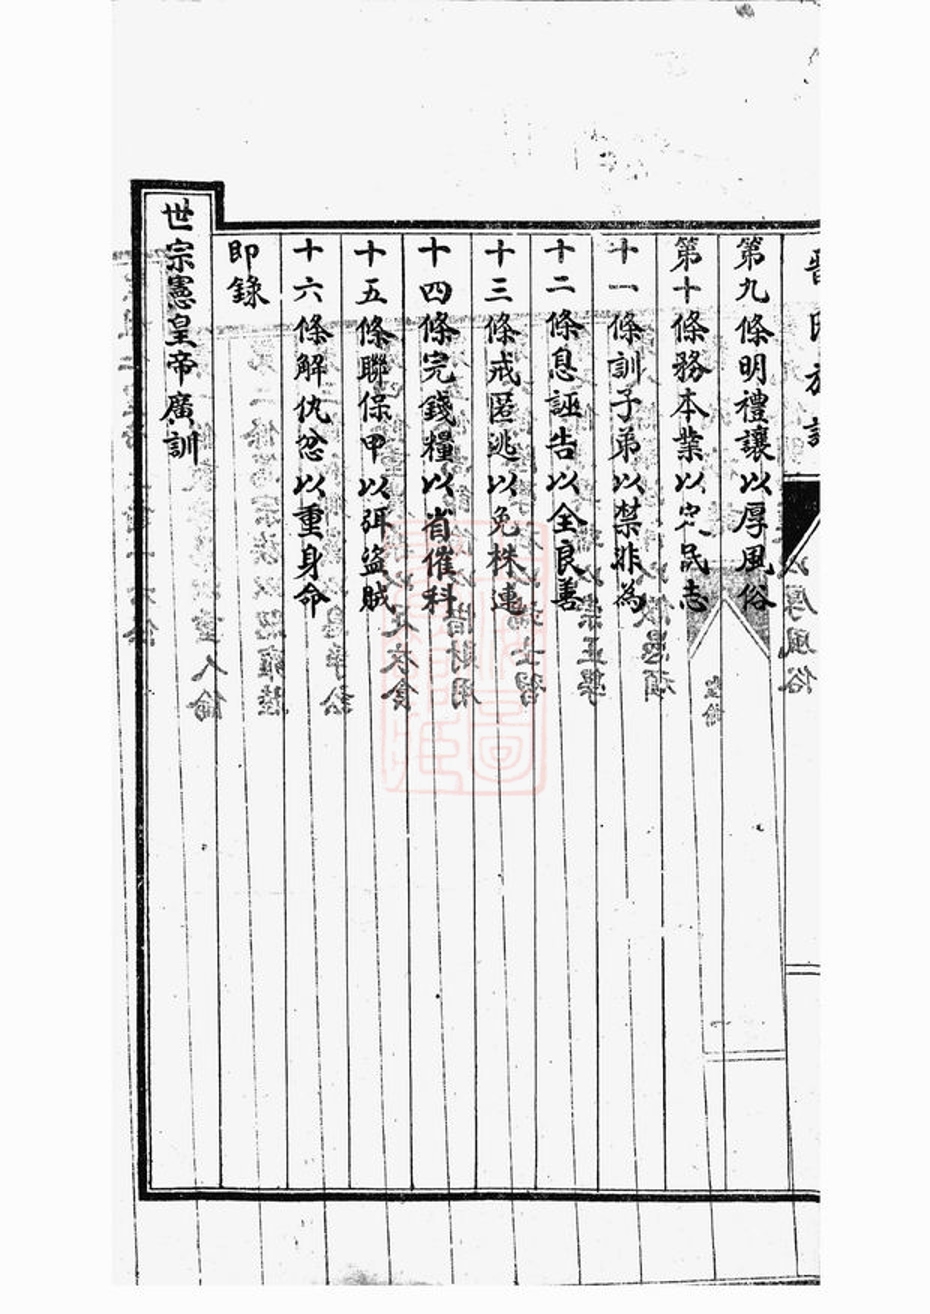 第九條明禮讓以厚風俗
第十條務本業以定民志
十一條訓子弟以禁非為
十二條息誣告以全良善
十三條戒匿逃以免株連
十四條完錢糧以省催科
十五條聯保甲以弭盜賊
十六條解仇忿以重身命
即錄
世宗憲皇帝廣訓